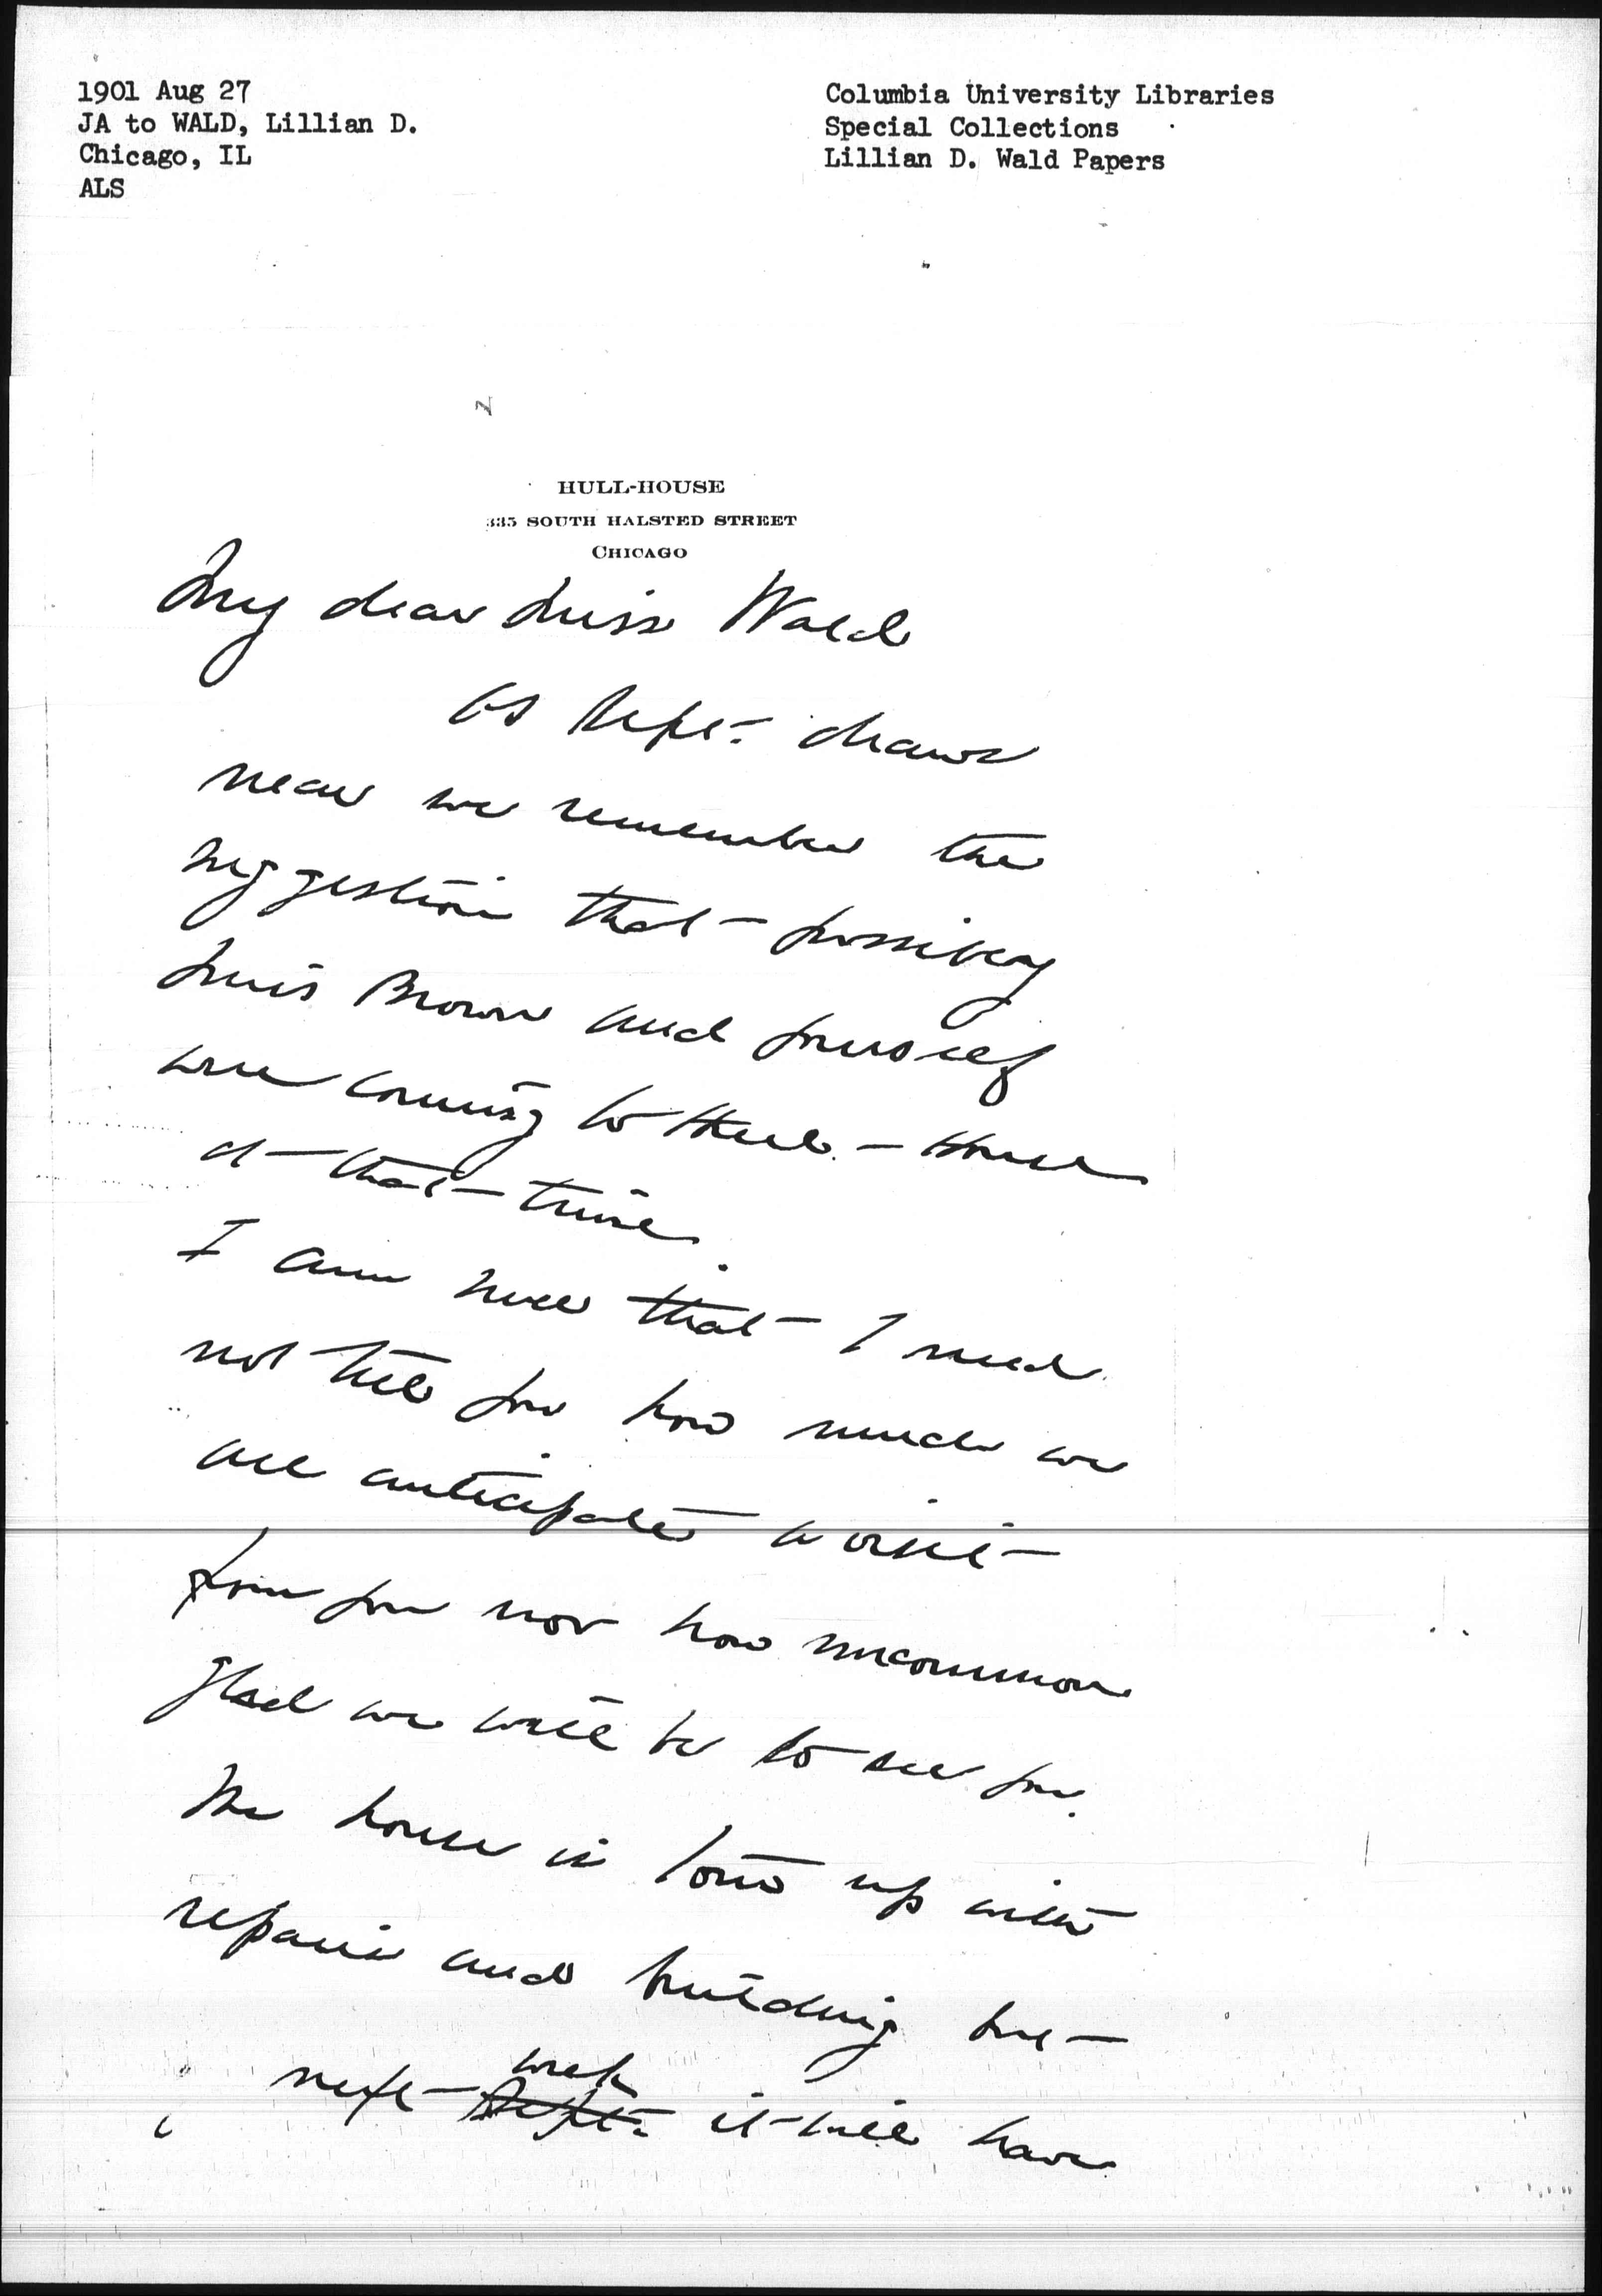 1901 Aug 27
JA to WALD, Lillian D.
Chicago, IL
ALS
Columbia University Libraries
Special Collections
Lillian D. Wald Papers
HULL-HOUSE
335 SOUTH HALSTED STREET
CHICAGO
My dear Miss Wald
As Sept. draws
near we remember the
suggestion that possibly
Miss Brown and yourself
were coming to Hull-House
at that time.
I am sure that I need
not tell you how much we
all anticipate a visit
from you nor how uncommon
glad we will be to see you.
The house is torn up with
repairs and building but
week
next Sept. it will have